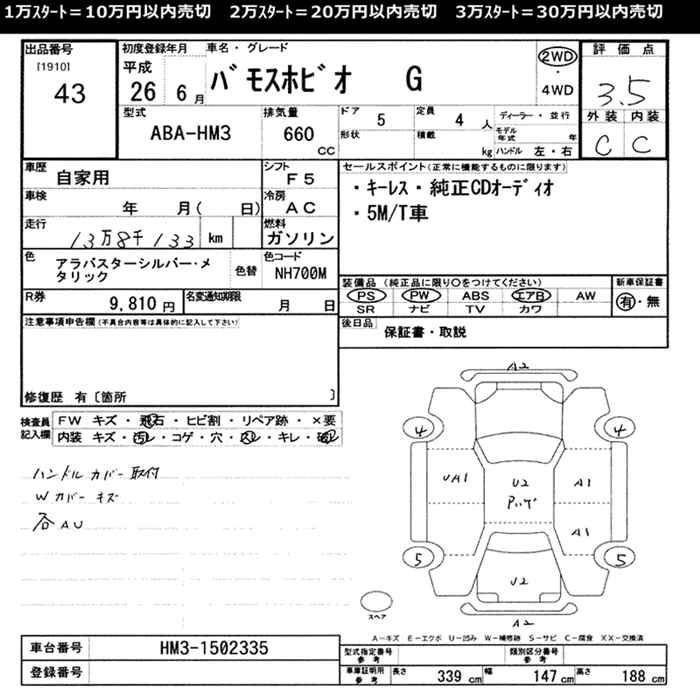 1万ｽﾀｰﾄ＝10万円以内売切　2万ｽﾀｰﾄ＝20万円以内売切　3万ｽﾀｰﾄ＝30万円以内売切
出品番号
[1910]
43
初度登録年月
平成
26 6 月
車名・グレード
バモスホビオ　G
2WD
・
4WD
評価点
3.5
外装 内装
C C
型式
ABA-HM3
排気量
660
CC
ドア
5
定員
4 人
形状
積載
kg
ディーラー・並行
モデル年式 年
ハンドル 左・右
車歴
自家用
シフト
F5
車検
年 月( 日)
冷房
AC
走行
13万8千133 km
燃料
ガソリン
色
アラバスターシルバー・メタリック
色替
色コード
NH700M
R券
9,810 円
名変通知期限
月 日
セールスポイント(正常に機能するものに限ります)
・キーレス・純正CDオーディオ
・5M/T車
装備品 (純正品に限り○をつけてください)
PS PW ABS エアB AW
SR ナビ TV カワ
新車保証書
有・無
後日品
保証書・取説
注意事項申告欄(不具合内容等は具体的に記入して下さい)
修復歴 有〔箇所 〕
検査員記入欄
FW キズ・飛石・ヒビ割・リペア跡・×要
内装 キズ・汚レ・コゲ・穴・スレ・キレ・破レ
ハンドルカバー取付
Wカバーキズ
各AU
A2
4
4
UA1
U2
A1
A1
5
5
U2
A2
スペア
A－キズ E－エクボ U－凹み W－補修跡 S－サビ C－腐食 XX－交換済
車台番号
HM3-1502335
登録番号
型式指定番号
参考
類別区分番号
参考
車庫証明用
参考
長さ 339 cm 幅 147 cm 高さ 188 cm